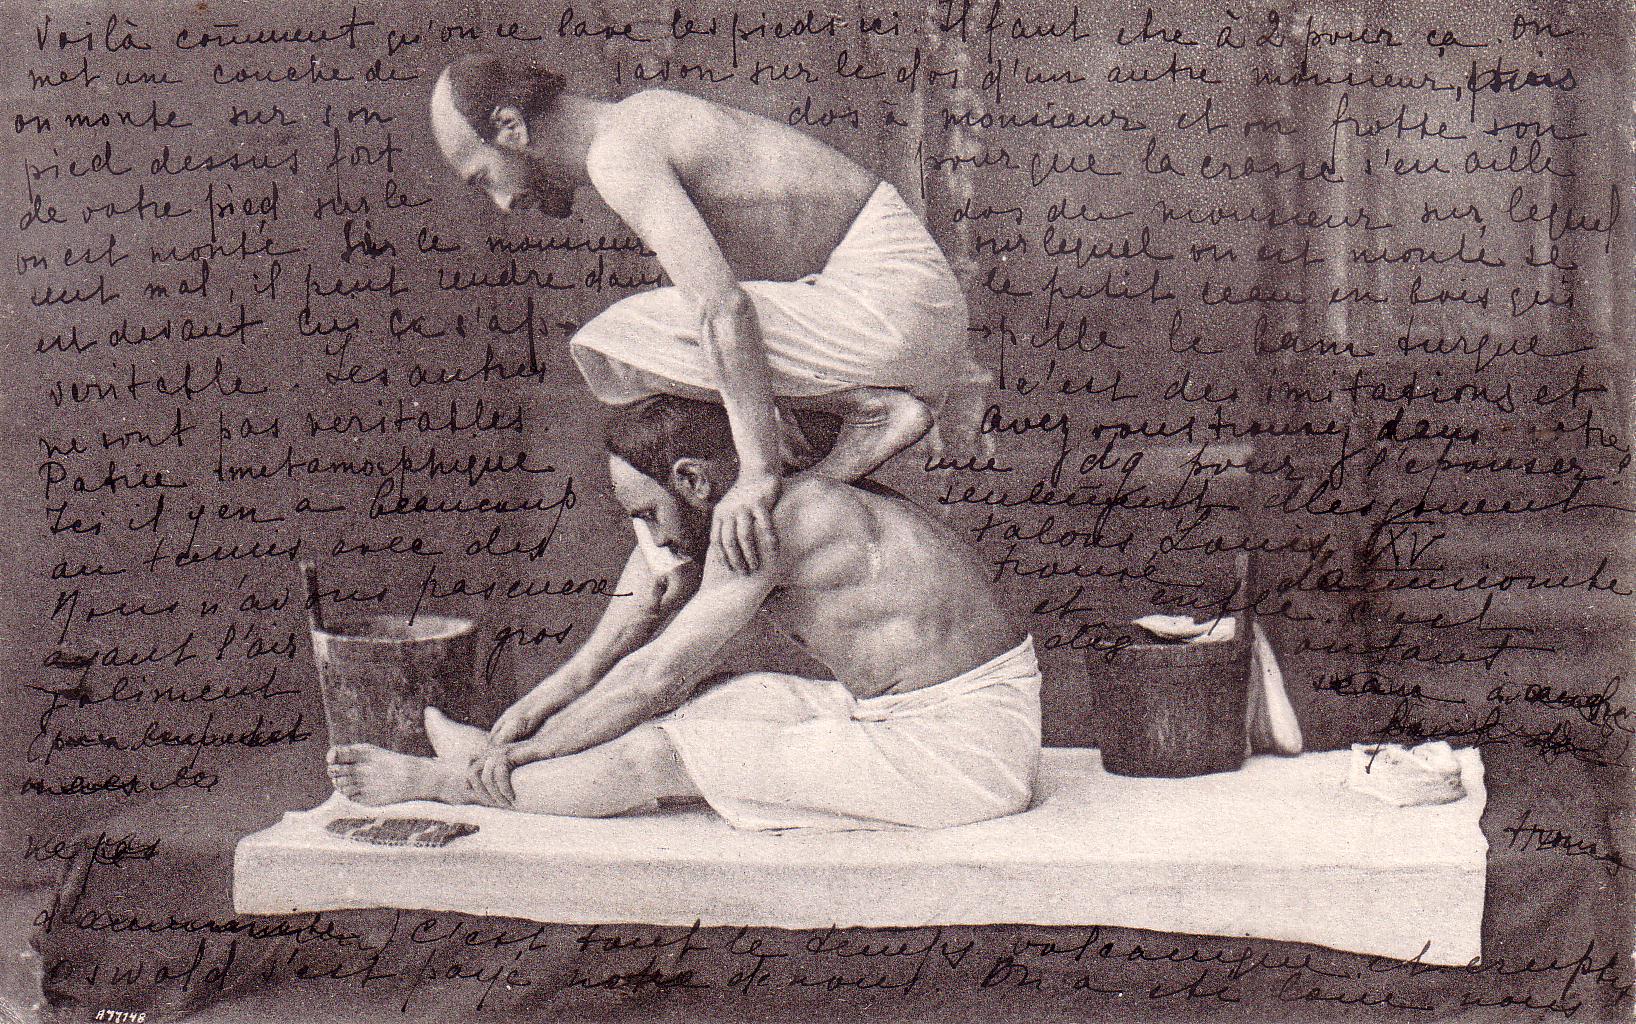 Voilà comment qu'on se lave les pieds ici. Il faut etre à 2 pour ça. on
met une couche de savon sur le dos d'un autre monsieur, puis
on monte sur son dos à monsieur et on frotte son
pied dessus fort pour que la crasse s'en aille
de votre pied sur le dos du monsieur sur lequel
on est monté. Si le monsieur sur lequel on est monté se
sent mal, il peut rendre dans le petit seau en bois qui
est devant lui. ça s'ap- -pelle le bain turque
veritable. Les autres c'est des imitations et
ne sont pas veritables. Avez vous trouvé dans votre
Patrie metamorphique une pour l'epouser?
Ici il y en a beaucoup seulement elles jouent
au tennis avec des talons Louis XV
Nous n'avons pas encore trouvé d'ammonite
ayant l'air gros et enflé. c'est
autant
seau à
ne pas
d'ammonite) c'est tout le temps volcanique et
Oswald s'est payé notre de nous. On a été nous
A77148